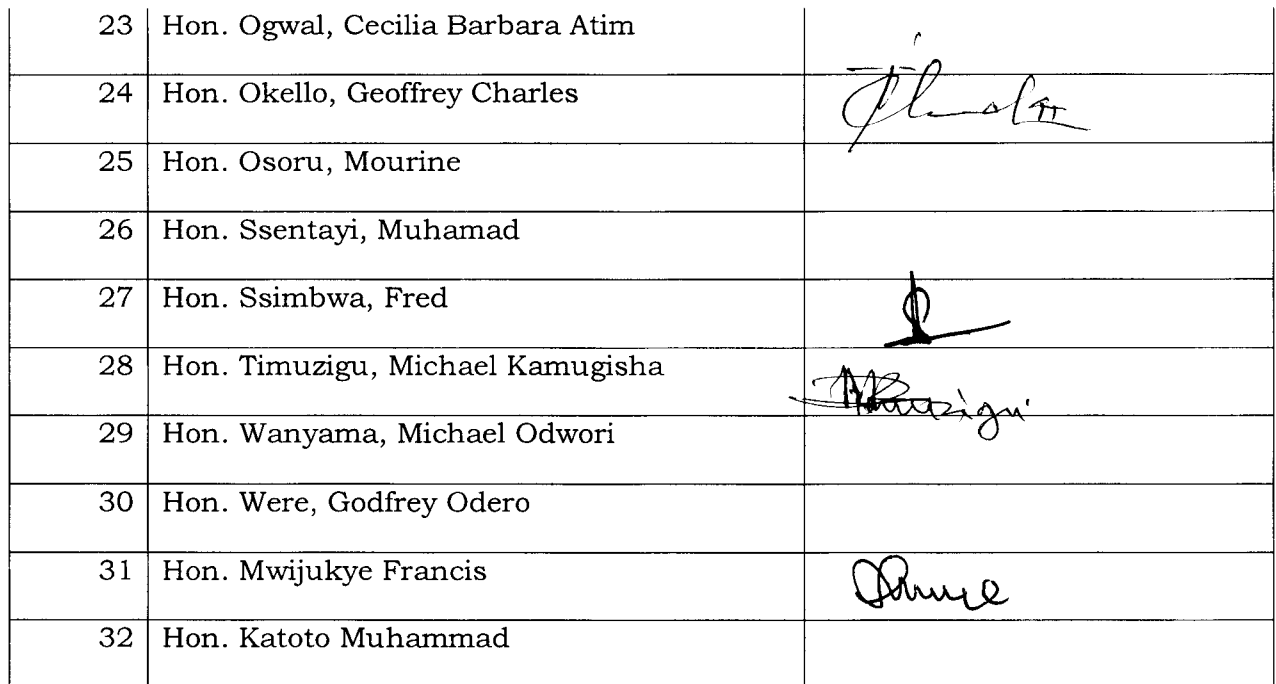 23 Hon. Ogwal, Cecilia Barbara Atim
24 Hon. Okello, Geoffrey Charles
25 Hon. Osoru, Mourine
26 Hon. Ssentayi, Muhamad
27 Hon. Ssimbwa, Fred
28 Hon. Timuzigu, Michael Kamugisha
29 Hon. Wanyama, Michael Odwori
30 Hon. Were, Godfrey Odero
31 Hon. Mwijukye Francis
32 Hon. Katoto Muhammad